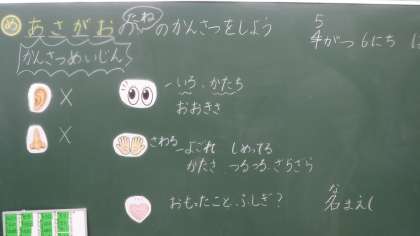 め あさがおの たね のかんさつをしよう
5
4がつ 6にち
かんさつめいじん
×
いろ、かたち
おおきさ
×
さわる
よごれ しめってる
かたさ つるつる、ざらざら
おもったこと、ふしぎ?
な
名まえ(